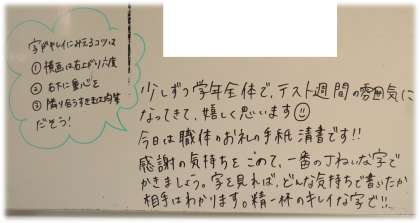 字がキレイにみえるコツは
①横画は右上がり六度
②右下に重心を
③隣り合うすきまは均等
だそう!
少しずつ学年全体で、テスト週間の雰囲気に
なってきて、嬉しく思います☺
今日は職体のお礼の手紙清書です!!
感謝の気持ちをこめて、一番の丁ねいな字で
かきましょう。字を見れば、どんな気持ちで書いたか
相手はわかります。精一杯のキレイな字で!!